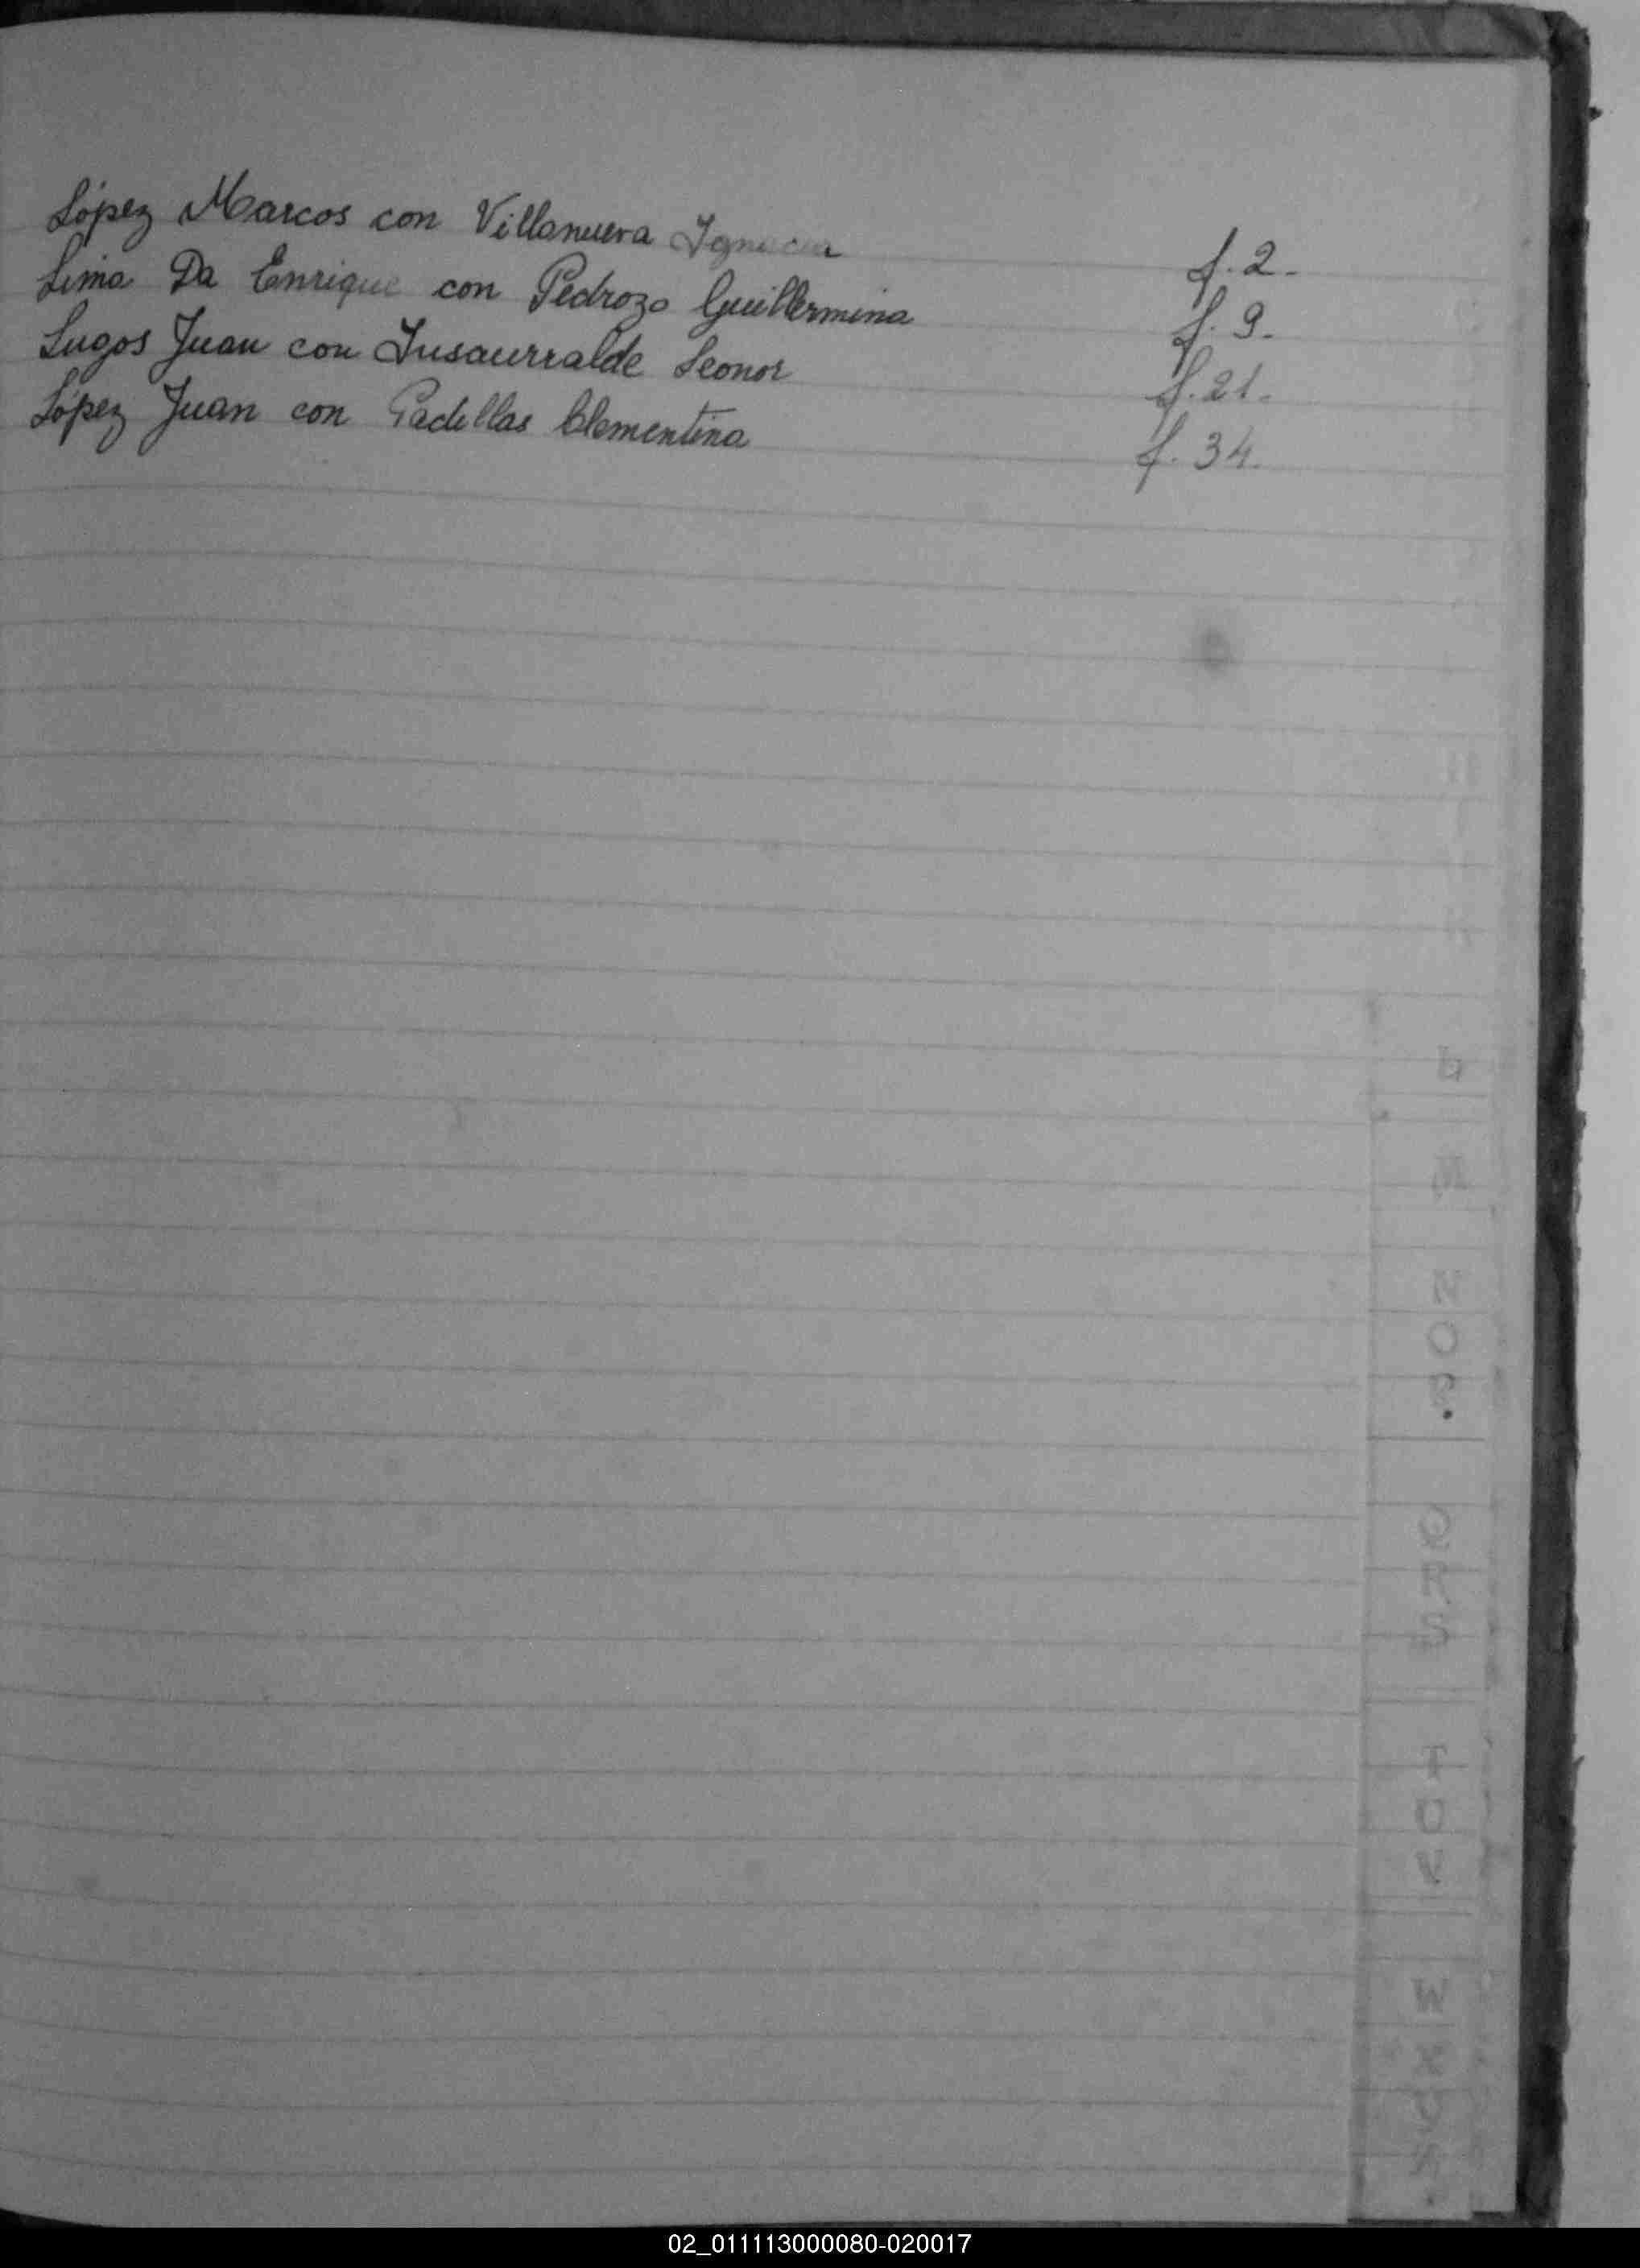 López Marcos con Villanueva Ignacia f. 2.
Lima Da Enrique con Pedrozo Guillermina f. 9.
Lugos Juan con Insaurralde Leonor f. 21.
López Juan con Padillas Clementina f. 34.
L
M
N
O
P.
Q
R
S
T
U
V
W
X
Y
Z.
02_011113000080-020017